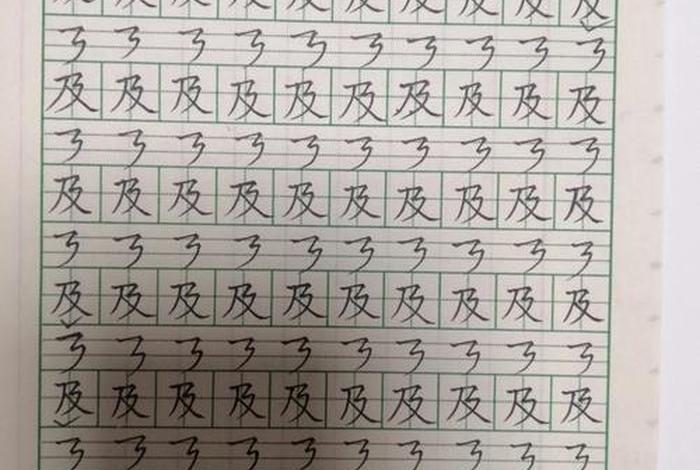 ㇋㇋㇋㇋㇋㇋㇋㇋㇋㇋
及及及及及及及及及及
㇋㇋㇋㇋㇋㇋㇋㇋㇋㇋
及及及及及及及及及及
㇋㇋㇋㇋㇋㇋㇋㇋㇋㇋
及及及及及及及及及及
㇋㇋㇋㇋㇋㇋㇋㇋㇋㇋
及及及及及及及及及及
㇋㇋㇋㇋㇋㇋㇋㇋㇋㇋